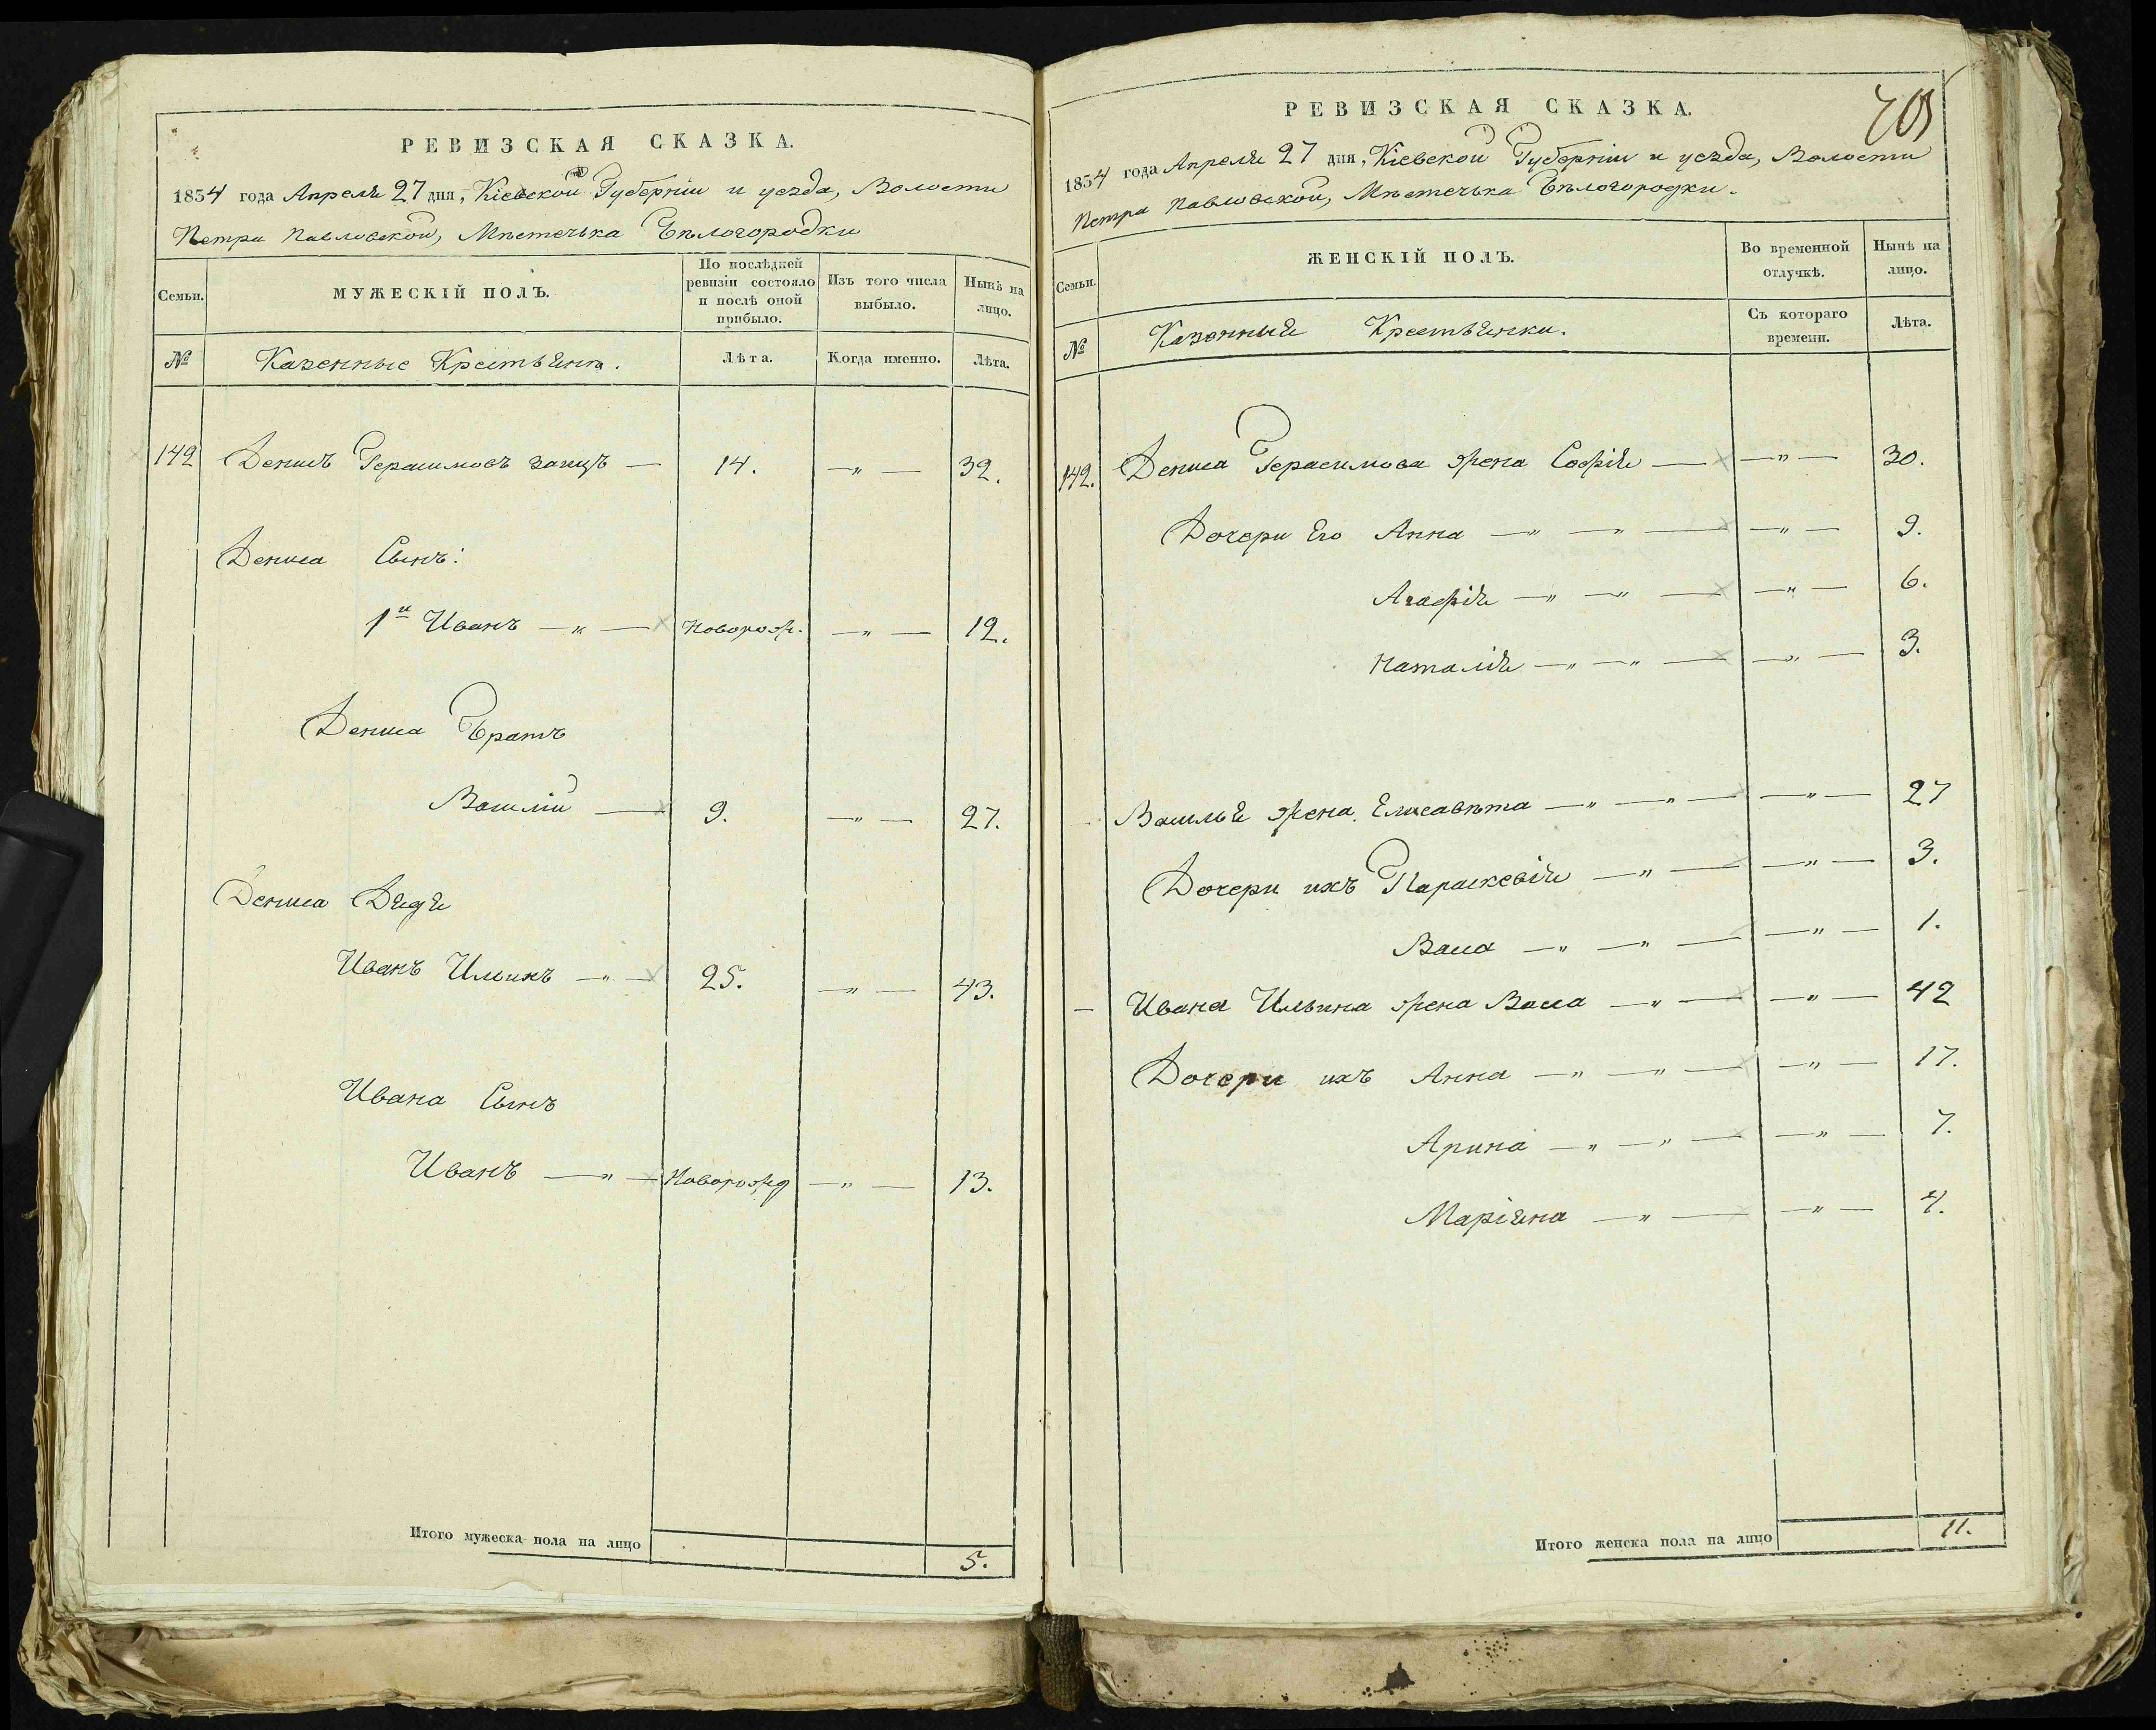 РЕВИЗСКАЯ СКАЗКА.
1854 года Апреля 27 дня, Кіевской Губерніи и уезда, Волости
Петра Павловской, Мѣстечька Бѣлогородки
Семьи.
МУЖЕСКІЙ ПОЛЪ.
По послѣдней ревизіи состояло и послѣ оной прибыло.
Изъ того числа выбыло.
Нынѣ на лицо.
№
Казенные Крестьяне.
Лѣта.
Когда именно.
Лѣта.
142 Денисъ Герасимовъ Заицъ — 14. —"— 32.
Дениса Сынъ:
1й Иванъ —"— Новорож. —"— 12.
Дениса Братъ
Василій — 9. —"— 27.
Дениса Дядя
Иванъ Ильинъ —"— 25. —"— 43.
Ивана Сынъ
Иванъ —"— Новорожд —"— 13.
Итого мужеска пола на лицо 5.
РЕВИЗСКАЯ СКАЗКА.
1854 года Апреля 27 дня, Кіевской Губерніи и уезда, Волости
Петра Павловской, Мѣстечька Бѣлогородки.
Семьи.
ЖЕНСКІЙ ПОЛЪ.
Во временной отлучкѣ.
Нынѣ на лицо.
№
Казенныя Крестьянки.
Съ котораго времени.
Лѣта.
142. Дениса Герасимова жена Софія — —"— 30.
Дочери Его Анна —"—"— —"— 9.
Агафія —"—"— —"— 6.
Наталія —"—"— —"— 3.
Василья жена Елисавѣта —"—"— —"— 27
Дочери ихъ Параскевія —"— —"— 3.
Васса —"—"— —"— 1.
— Ивана Ильина жена Васса —"— —"— 42
Дочери ихъ Анна —"—"— —"— 17.
Арина —"—"— —"— 7.
Маріяна —"— —"— 4.
Итого женска пола на лицо 11.